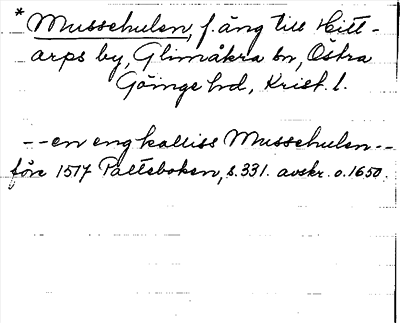 * Mussehulen, f. äng till Hitt-
arps by, Glimåkra sn, Östra
Göinge hd, Krist. l.
-- en eng kalliss Mussehulen --
före 1517 Palteboken, s. 331. avskr. o. 1650.